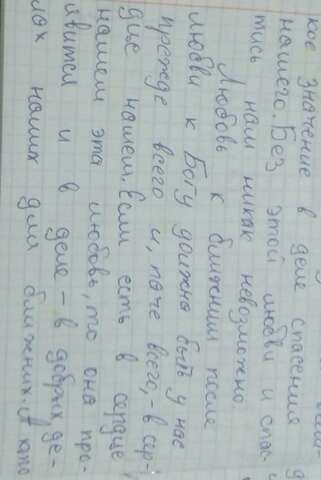 кое значение в деле спасения
нашего. Без этой любви и спас-
тись нам никак невозможно
Любовь к ближним после
любви к Богу должна быть у нас
прежде всего и, паче всего, – в сер-
дце нашем. Если есть в сердце
нашем эта любовь, то она про-
явится и в деле – в добрых де-
лах наших для ближних. И